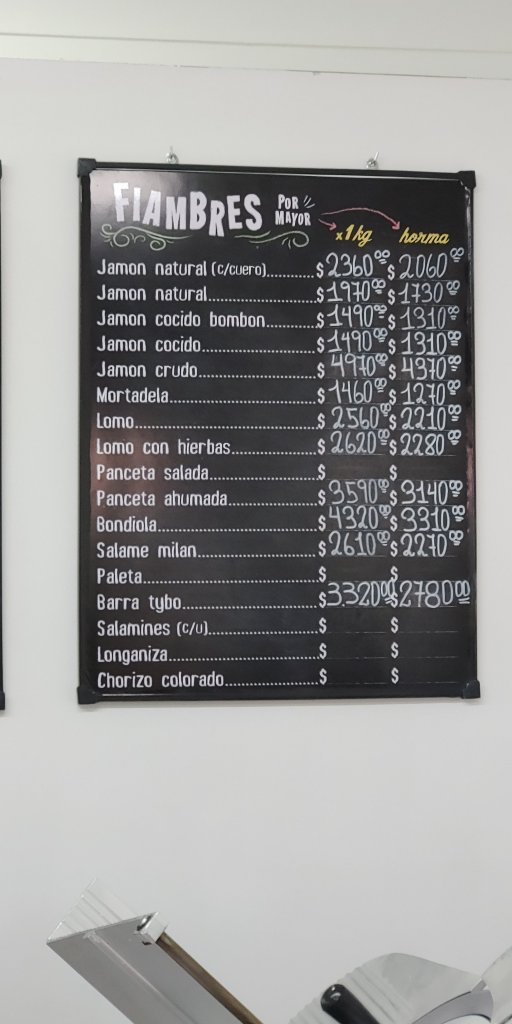 FIAMBRES POR MAYOR
x1kg horma
Jamon natural (c/cuero)..........$ 2360⁰⁰ $ 2060⁰⁰
Jamon natural..........$ 1970⁰⁰ $ 1730⁰⁰
Jamon cocido bombon..........$ 1490⁰⁰ $ 1310⁰⁰
Jamon cocido..........$ 1490⁰⁰ $ 1310⁰⁰
Jamon crudo..........$ 4970⁰⁰ $ 4370⁰⁰
Mortadela..........$ 1460⁰⁰ $ 1270⁰⁰
Lomo..........$ 2560⁰⁰ $ 2210⁰⁰
Lomo con hierbas..........$ 2620⁰⁰ $ 2280⁰⁰
Panceta salada..........$ $
Panceta ahumada..........$ 3590⁰⁰ $ 3140⁰⁰
Bondiola..........$ 4320⁰⁰ $ 3310⁰⁰
Salame milan..........$ 2610⁰⁰ $ 2270⁰⁰
Paleta..........$ $
Barra tybo..........$ 3320⁰⁰ $ 2780⁰⁰
Salamines (c/u)..........$ $
Longaniza..........$ $
Chorizo colorado..........$ $